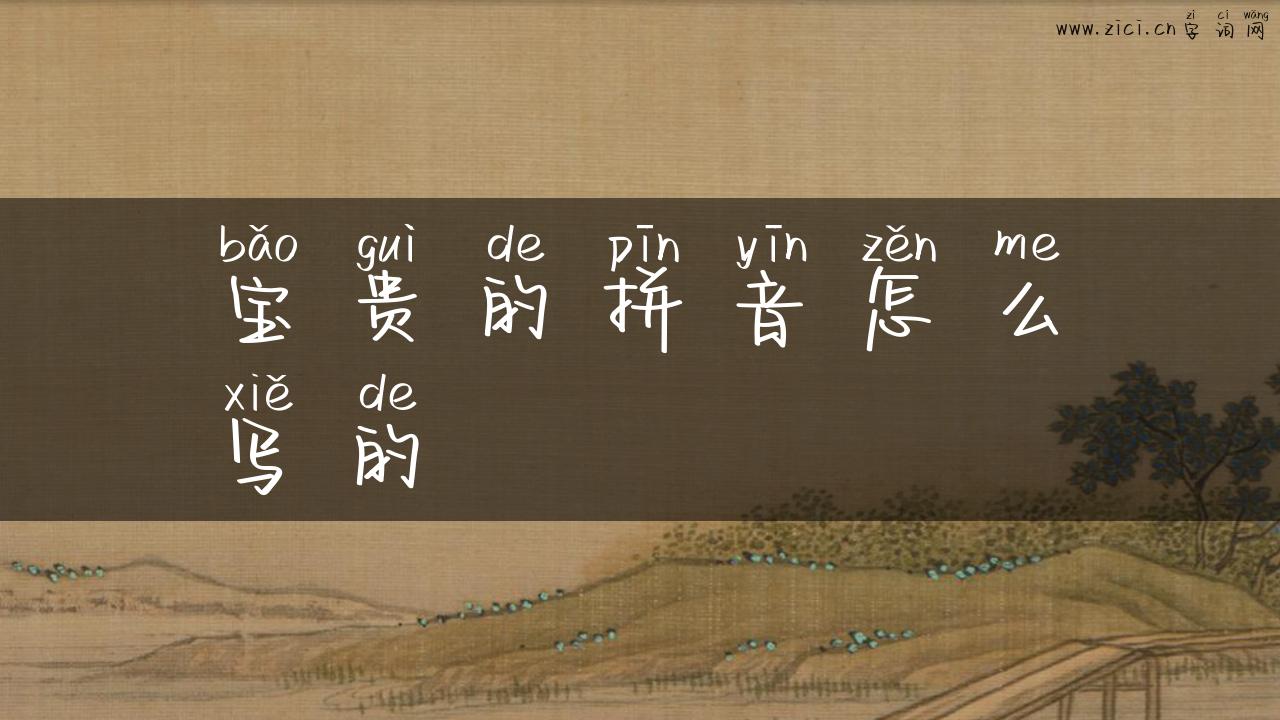 zì cí wǎng
www.zici.cn字词网
bǎo guì de pīn yīn zěn me
宝贵的拼音怎么
xiě de
写的